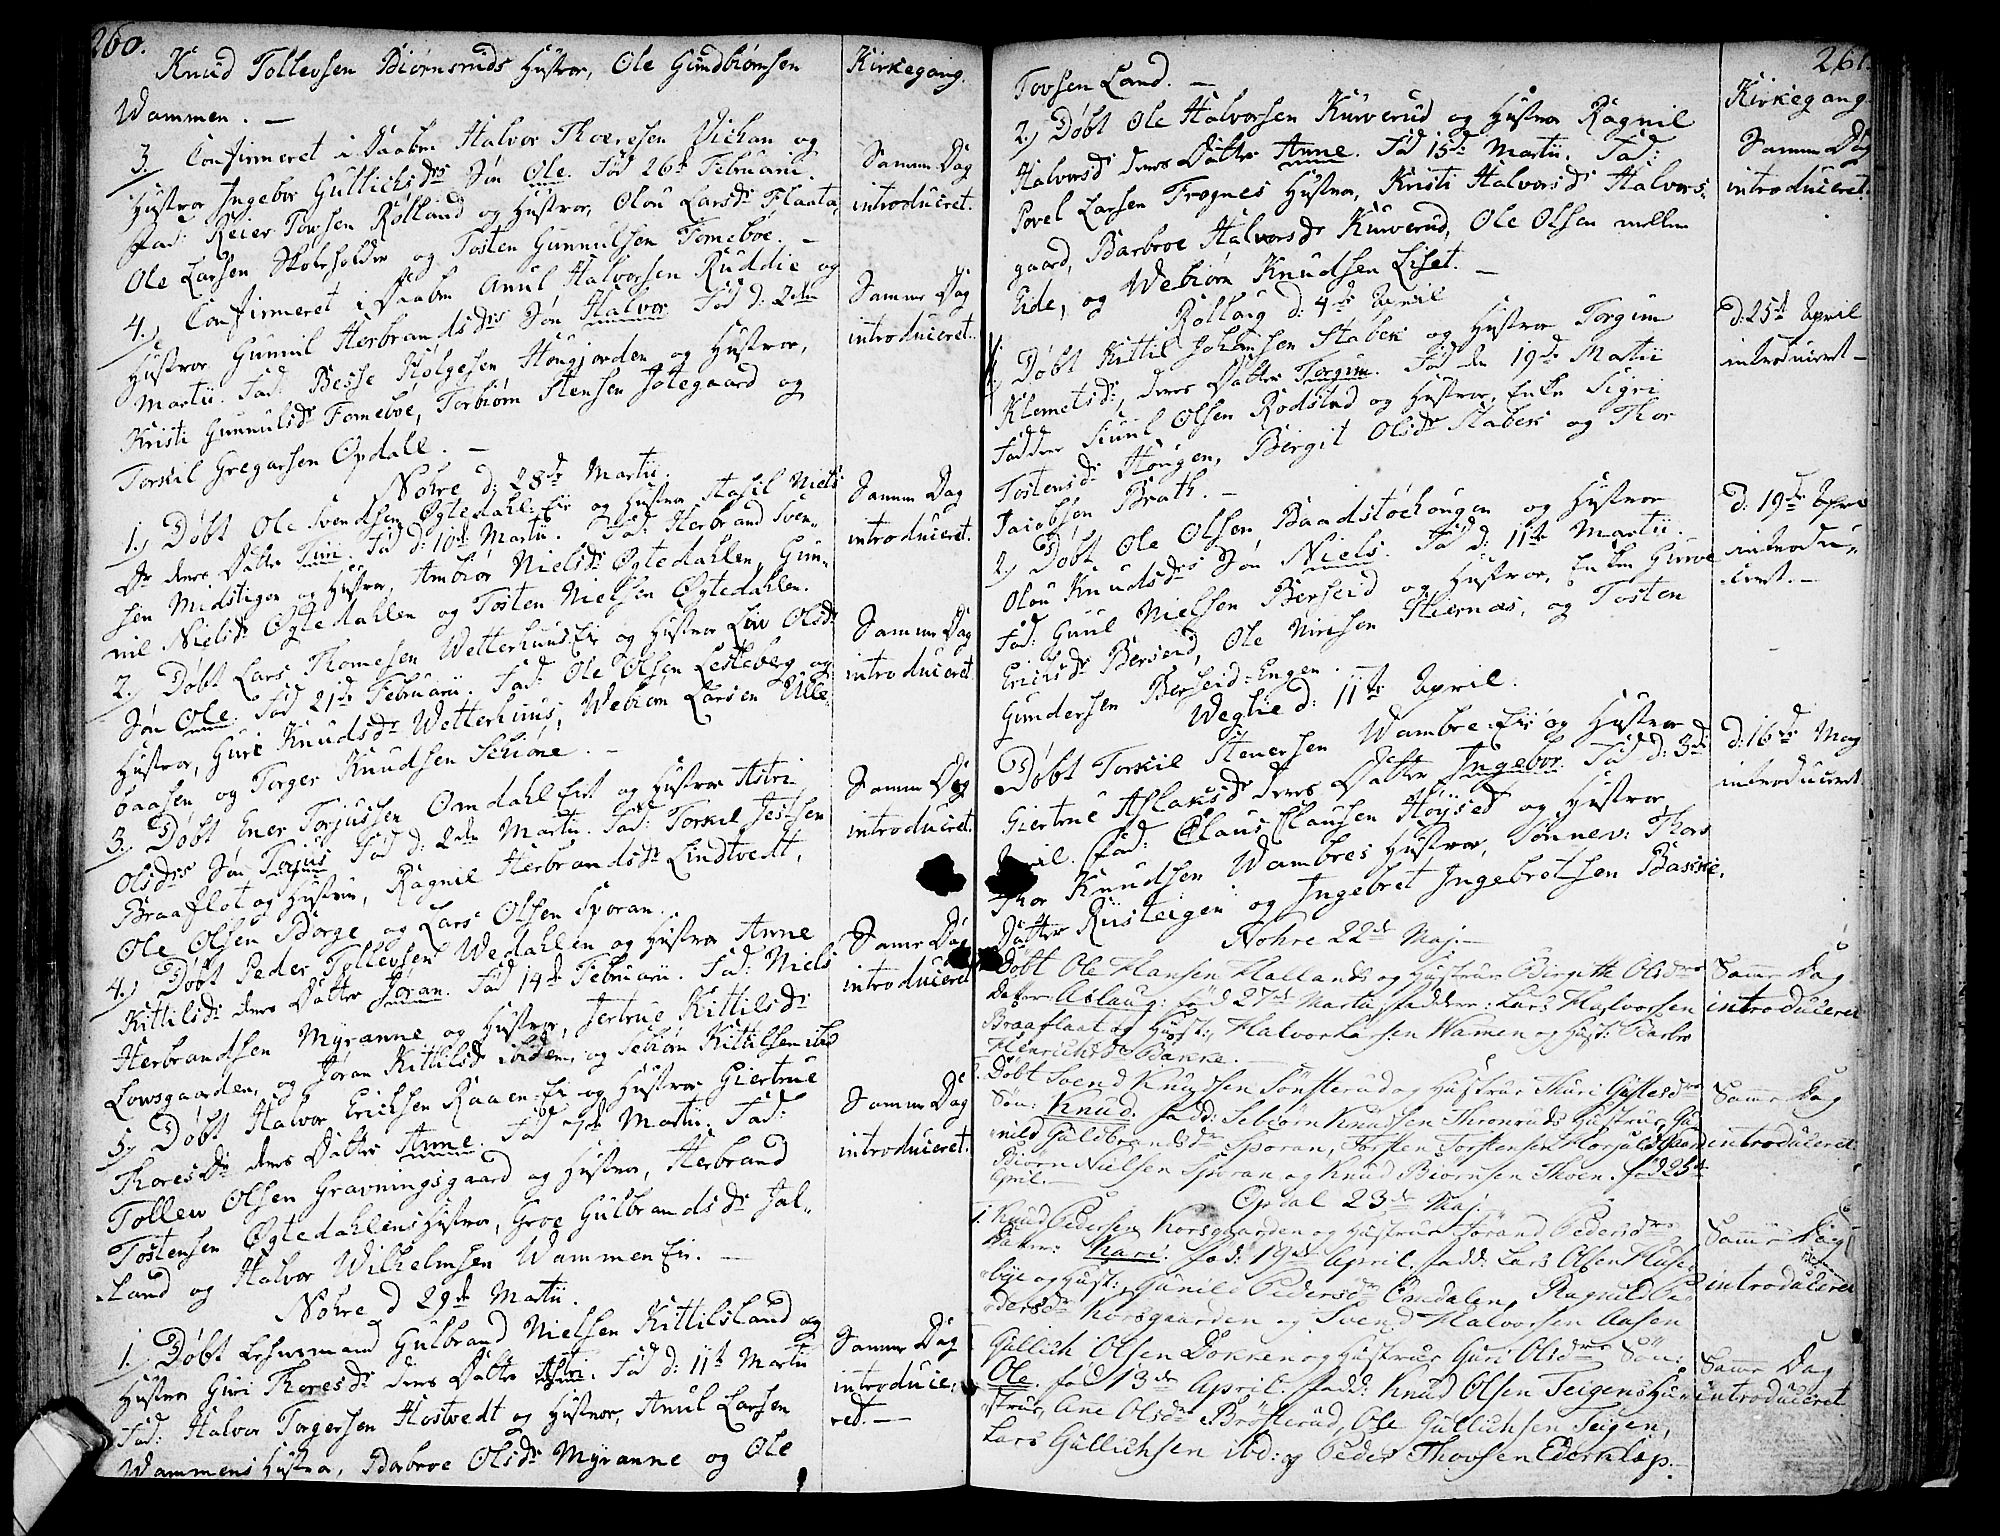 260.
Knud Tollevsen Biørnsruds Hustroe, Ole Gundbiørnsen
Wammen. —
3. Confirmeret i Daaben Halvor Thoresen Vichan og
Hustroe Ingebor Gullichsdrs Søn Ole. Fød 26de Februarii.
Fad: Reier Tovsen Rolland og Hustroe, Olou Larsdr Flaata,
Ole Larsen Skoleholder og Tosten Gunnulsen Fomeboe. —
4. Confirmeret i Daaben Anul Halvorsen Ruddie og
Hustroe Gunnil Herbrandsdrs Søn Halvor Fød d: 2den
Martii. Fad: Besse Hølgesen Hougjorden og Hustroe,
Kristi Gunnulsdr Fomeboe, Torbiørn Stensen Jotegaard og
Torkil Gregarsen Opdall. —
Nohre d: 28de Martii.
1. Døbt Ole Svendsen Øgtedahl-Eie og Hustroe Aasil Niels
Dr deres Datter Turi. Fød d: 10de Martii. Fad: Herbrand Sven-
sen Midstigen og Hustroe, Ambior Nielsdr Øgtedahlen, Gun-
nil Nielsdr Øgtedahlen og Tosten Nielsen Øgtedahlen.
2. Døbt Lars Thomesen Wetterhuus Eie og Hustroe Liv Olsdr
Søn Ole. Fød 21de Februarii. Fad: Ole Olsen Lesteberg og
Hustroe, Guri Knudsdr Wetterhuus, Webiørn Larsen Ulle-
baasen og Torger Knudsen Schiøne. —
3. Døbt Ener Torjussen Omdahl Eiet og Hustroe Astri
Olsdrs Søn Torjus Fød d: 2den Martii. Fad: Torkil Jessen
Braaflot og Hustrue, Ragnil Herbrandsdr Lindtvedt,
Ole Olsen Borge og Lars Olsen Sporan.
4. Døbt Peder Tollevsen Wedahlen og Hustroe Anne
Kittilsdr deres Datter Jøran. Fød 14de Februarii. Fad: Niels
Herbrandsen Myranne og Hustroe, Jertrue Kittilsdr
Lovsgaarden, og Jøran Kittilsdr ibidem og Sebiørn Kittilsen ibd
5. Døbt Halvor Erichsen Raaen-Eie og Hustroe Giertrue
Thoresdr deres Datter Anne. Fød 7de Martii. Fad:
Tollew Olsen Gravningsgaard og Hustroe, Herbrand
Tostensen Øgtedahlens Hustroe, Groe Gulbrandsdr Jal-
land og Halvor Wilhelmsen Wammen Eie. —
Nohre d 29de Martii.
1. Døbt Lehnsmand Gulbrand Nielsen Kittilsland og
Hustroe Guri Thoresdr deres Datter Astri. Fød d: 11te Martii
Fad: Halvor Torgersen Hostvedt og Hustroe, Anul Larsen
Wammens Hustroe, Barbroe Olsdr Myranne og Ole
Kirkegang.
Samme Dag
introduceret.
Samme Dag
introduceret.
Samme Dag
introduceret.
Samme Dag
introduceret
Samme Dag
introduceret.
Samme Dag
introduceret
Samme Dag
introduceret.
Samme Dag
introduce-
ret. —
261.
Tovsen Land. —
2. Døbt Ole Halvorsen Kurverud og Hustroe Ragnil
Halvorsd deres Datter Anne. Fød 15de Martii. Fad:
Povel Larsen Frognes Hustroe, Kristi Halvorsdr Halvors-
gaard, Barbroe Halvorsdr Kurverud, Ole Olsen mellem
Eide, og Webiørn Knudsen Liset. —
Rollaug d: 4de April
1. Døbt Kittil Johansen Stabek og Hustroe Torgun
Klemetsdr, deres Datter Torgun. Fød den 19de Martii
Faddere Kiuul Olsen Rodstad og Hustroe, Enke Sigri
Tostensdr Hougen, Bergit Olsdr Stabek og Thor
Jacobsen Brath. —
2. Døbt Ole Olsen, Baadstøehougen og Hustroe
Olou Knudsdrs Søn Niels. Fød d: 11te Martii.
Fad: Guul Nielsen Berseid og Hustroe, Enke Gurve
Erichsdr Berseid, Ole Nirisen Skiernæs, og Tosten
Gundersen Berseid-Engen.
Weglie d: 11te April.
Døbt Torkil Stenersen Wambre-Eie og Hustroe
Giertrue Aslaksdr deres Datter Ingebor. Fød d: 3de
April. Fad: Claus Clausen Høyset og Hustroe,
Thor Knudsen Wambres Hustroe, Sønnev: Thors
Datter Riisteigen og Ingebret Ingebretsen Baskie.
Nohre 22de Maj. —
Døbt Ole Hansen Hallands og Hustrue Birgitte Olsdrs
Datter: Aslaug: fød 27de Martii, faddere: Lars Halvorsen
Braaflaat og Hust:, Halvor Larsen Wamen og Hust: Barbro
Henrichsdr Bakke. —
Døbt Svend Knudsen Sønsterud og Hustrue Thuri Gutlesdrs
Søn: Knud. fadd: Sebiørn Knudsen Thronruds Hustrue, Gu-
nild Guldbrandsdr Sporan, Torsten Torstensen
Biørn Nielsen Sporan og Knud Biørnsen Thoen. fød 25de
April. —
Opdal 23de Maj.
1. Knud Pedersen Korsgaarden og Hustrue Jørand Pedersdrs
Datter: Kari. fød: 19de April. fadd: Lars Olsen Huse-
bye og Hust:, Gunild Pedersdr Omdalen, Ragnild Pe-
dersdr Korsgaarden og Svend Halvorsen Aasen
Gullich Olsen Dokken og Hustrue Guri Olsdrs Søn:
Ole. fød 13de April. fadd: Knud Olsen Teigens Hu-
strue, Ane Olsdr Brøsterud, Ole Gullichsen Teigen,
Lars Gullichsen ibd: og Peder Thovsen Ederklep. —
Kirkegang.
Samme Dag
introduceret.
D: 25de April
introduceret —
D: 19de April
introdu-
ceret. —
d: 16de May
introduceret
Same Dag
introduceret
Same Dag
introduceret.
Same Dag
introduceret
Same Dag
introduceret.